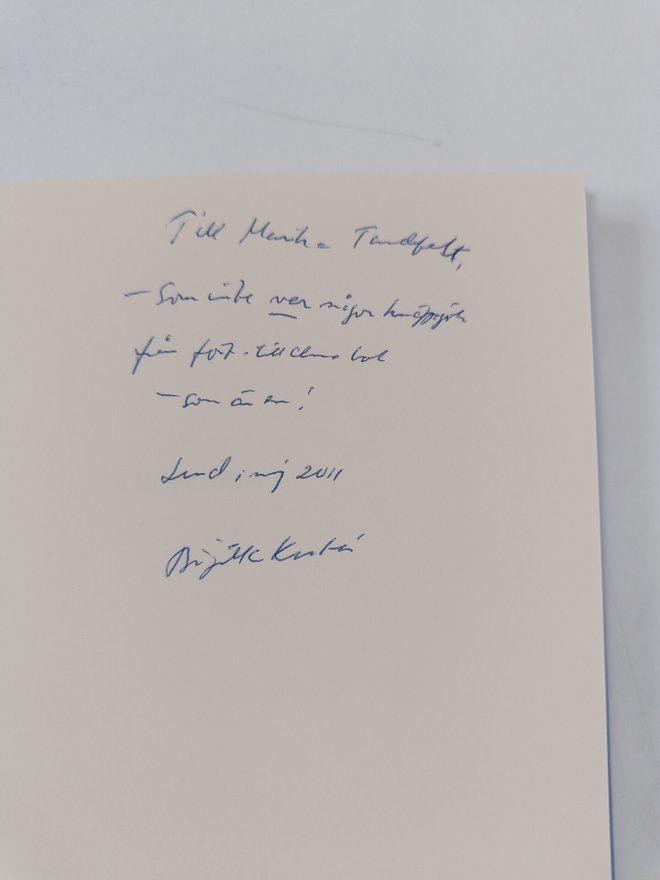 Till Marika Tandefelt,
– Som inte var någon knäppgök
från förr. till denna bok
– som är en!
Lund i maj 2011
Birgitta